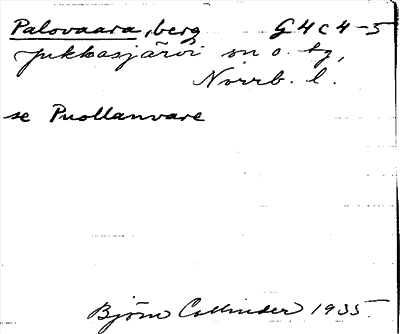 Palovaara, berg G4c4-5
Jukkasjärvi sn o. tg,
Norrb. l.
se Puollanvare
Björn Collinder 1935.